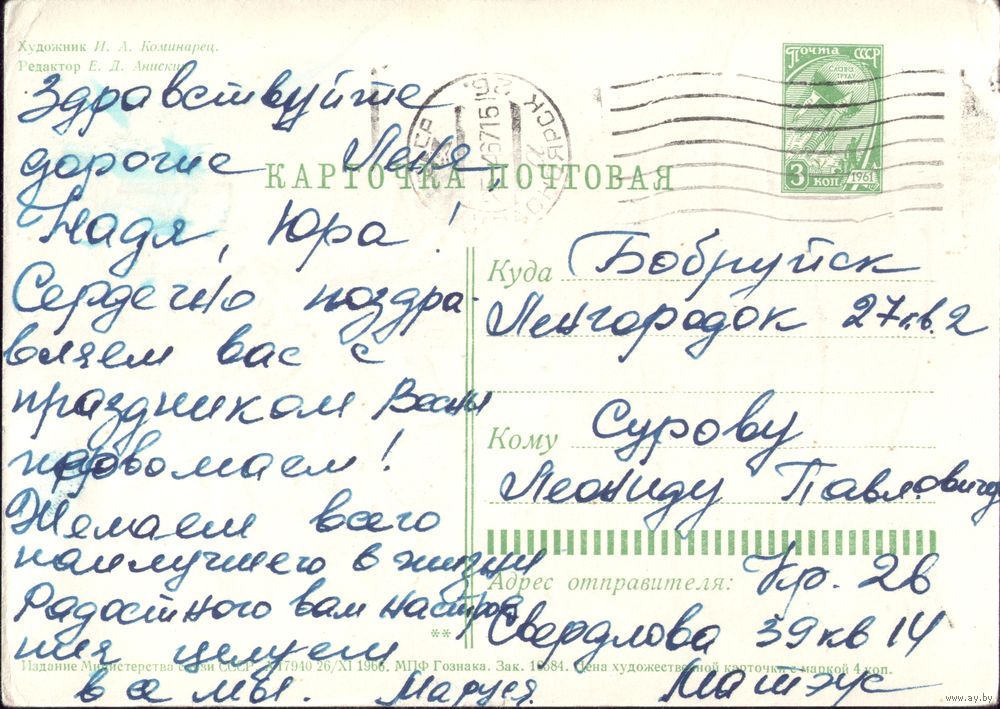 Художник И. А. Коминарец.
Редактор Е. Д. Анискин
Почта СССР
СЛАВА ТРУДУ
3 коп
1961
КАРТОЧКА ПОЧТОВАЯ
Здравствуйте
дорогие Леня,
Надя, Юра!
Сердечно поздра-
вляем вас с
праздником Весны
Желаем всего
наилучшего в жизни
Радостного вам настрое
ния целуем
все мы. Маруся.
Куда Бобруйск
Ленгородок 27 кв. 2
Кому Сурову
Леониду Павловичу
Адрес отправителя: Кр. 26
Свердлова 39 кв 14
Матэус
**
Издание Министерства связи СССР. А17940 26/XI 1966. МПФ Гознака. Зак. 10584. Цена художественной карточки с маркой 4 коп.
www.ay.by